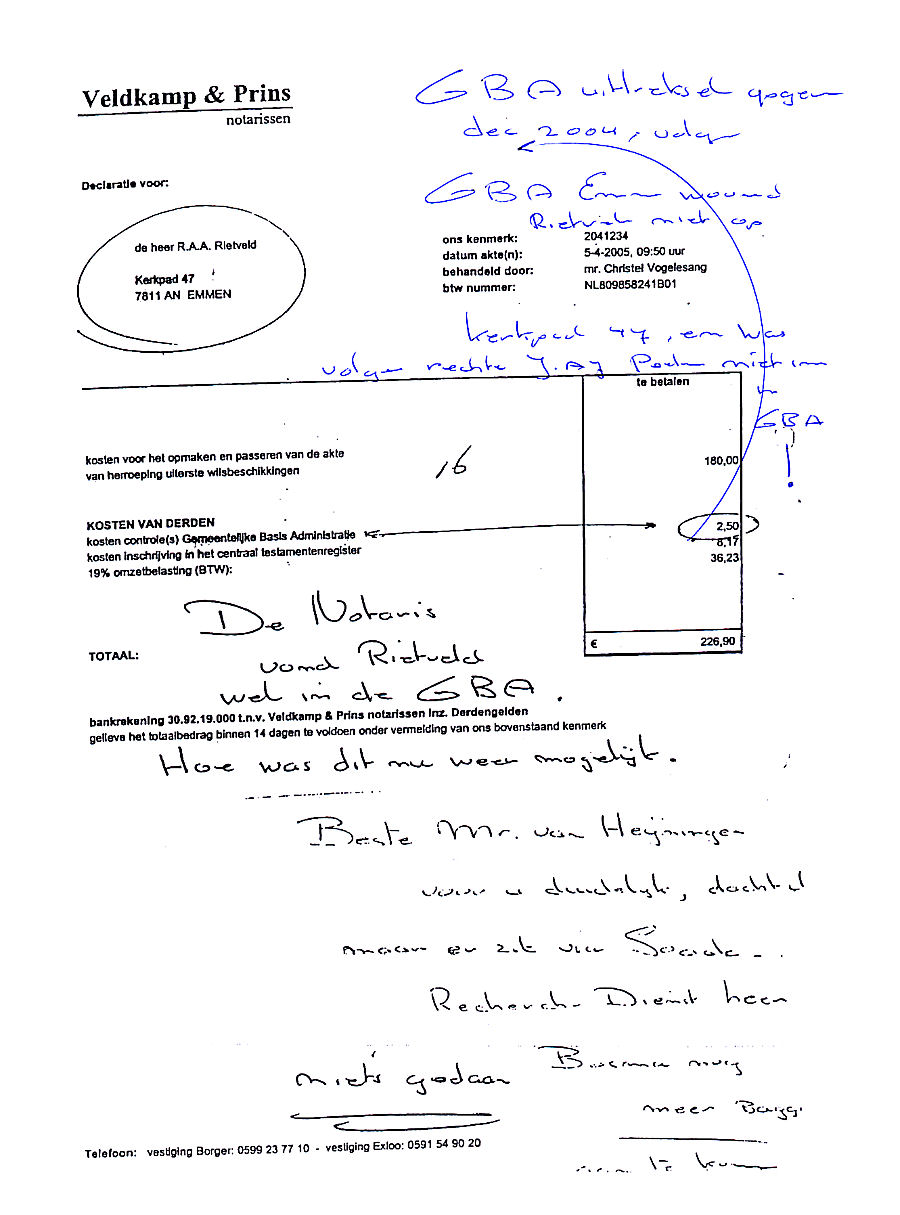 Veldkamp & Prins
notarissen
GBA uittreksel
dec 2004, volgens
Declaratie voor:
GBA Emmen woond
Rietveld niet op
de heer R.A.A. Rietveld
Kerkpad 47
7811 AN EMMEN
ons kenmerk: 2041234
datum akte(n): 5-4-2005, 09:50 uur
behandeld door: mr. Christel Vogelesang
btw nummer: NL809858241B01
Kerkpad 47, en was
volgens rechter niet in
GBA
!
te betalen
kosten voor het opmaken en passeren van de akte
van herroeping uiterste wilsbeschikkingen 180,00
16
KOSTEN VAN DERDEN
kosten controle(s) Gemeentelijke Basis Administratie 2,50
kosten inschrijving in het centraal testamentenregister 8,17
19% omzetbelasting (BTW): 36,23
De Notaris
TOTAAL: € 226,90
vond Rietveld
wel in de GBA.
bankrekening 30.92.19.000 t.n.v. Veldkamp & Prins notarissen inz. Derdengelden
gelieve het totaalbedrag binnen 14 dagen te voldoen onder vermelding van ons bovenstaand kenmerk
Hoe was dit nu weer mogelijk.
Beste Mr. van Heijningen
voor u duidelijk, dacht ik
maar er zit via Sociale
Recherche Dienst heen
niets gedaan
meer
Telefoon: vestiging Borger: 0599 23 77 10 - vestiging Exloo: 0591 54 90 20
te